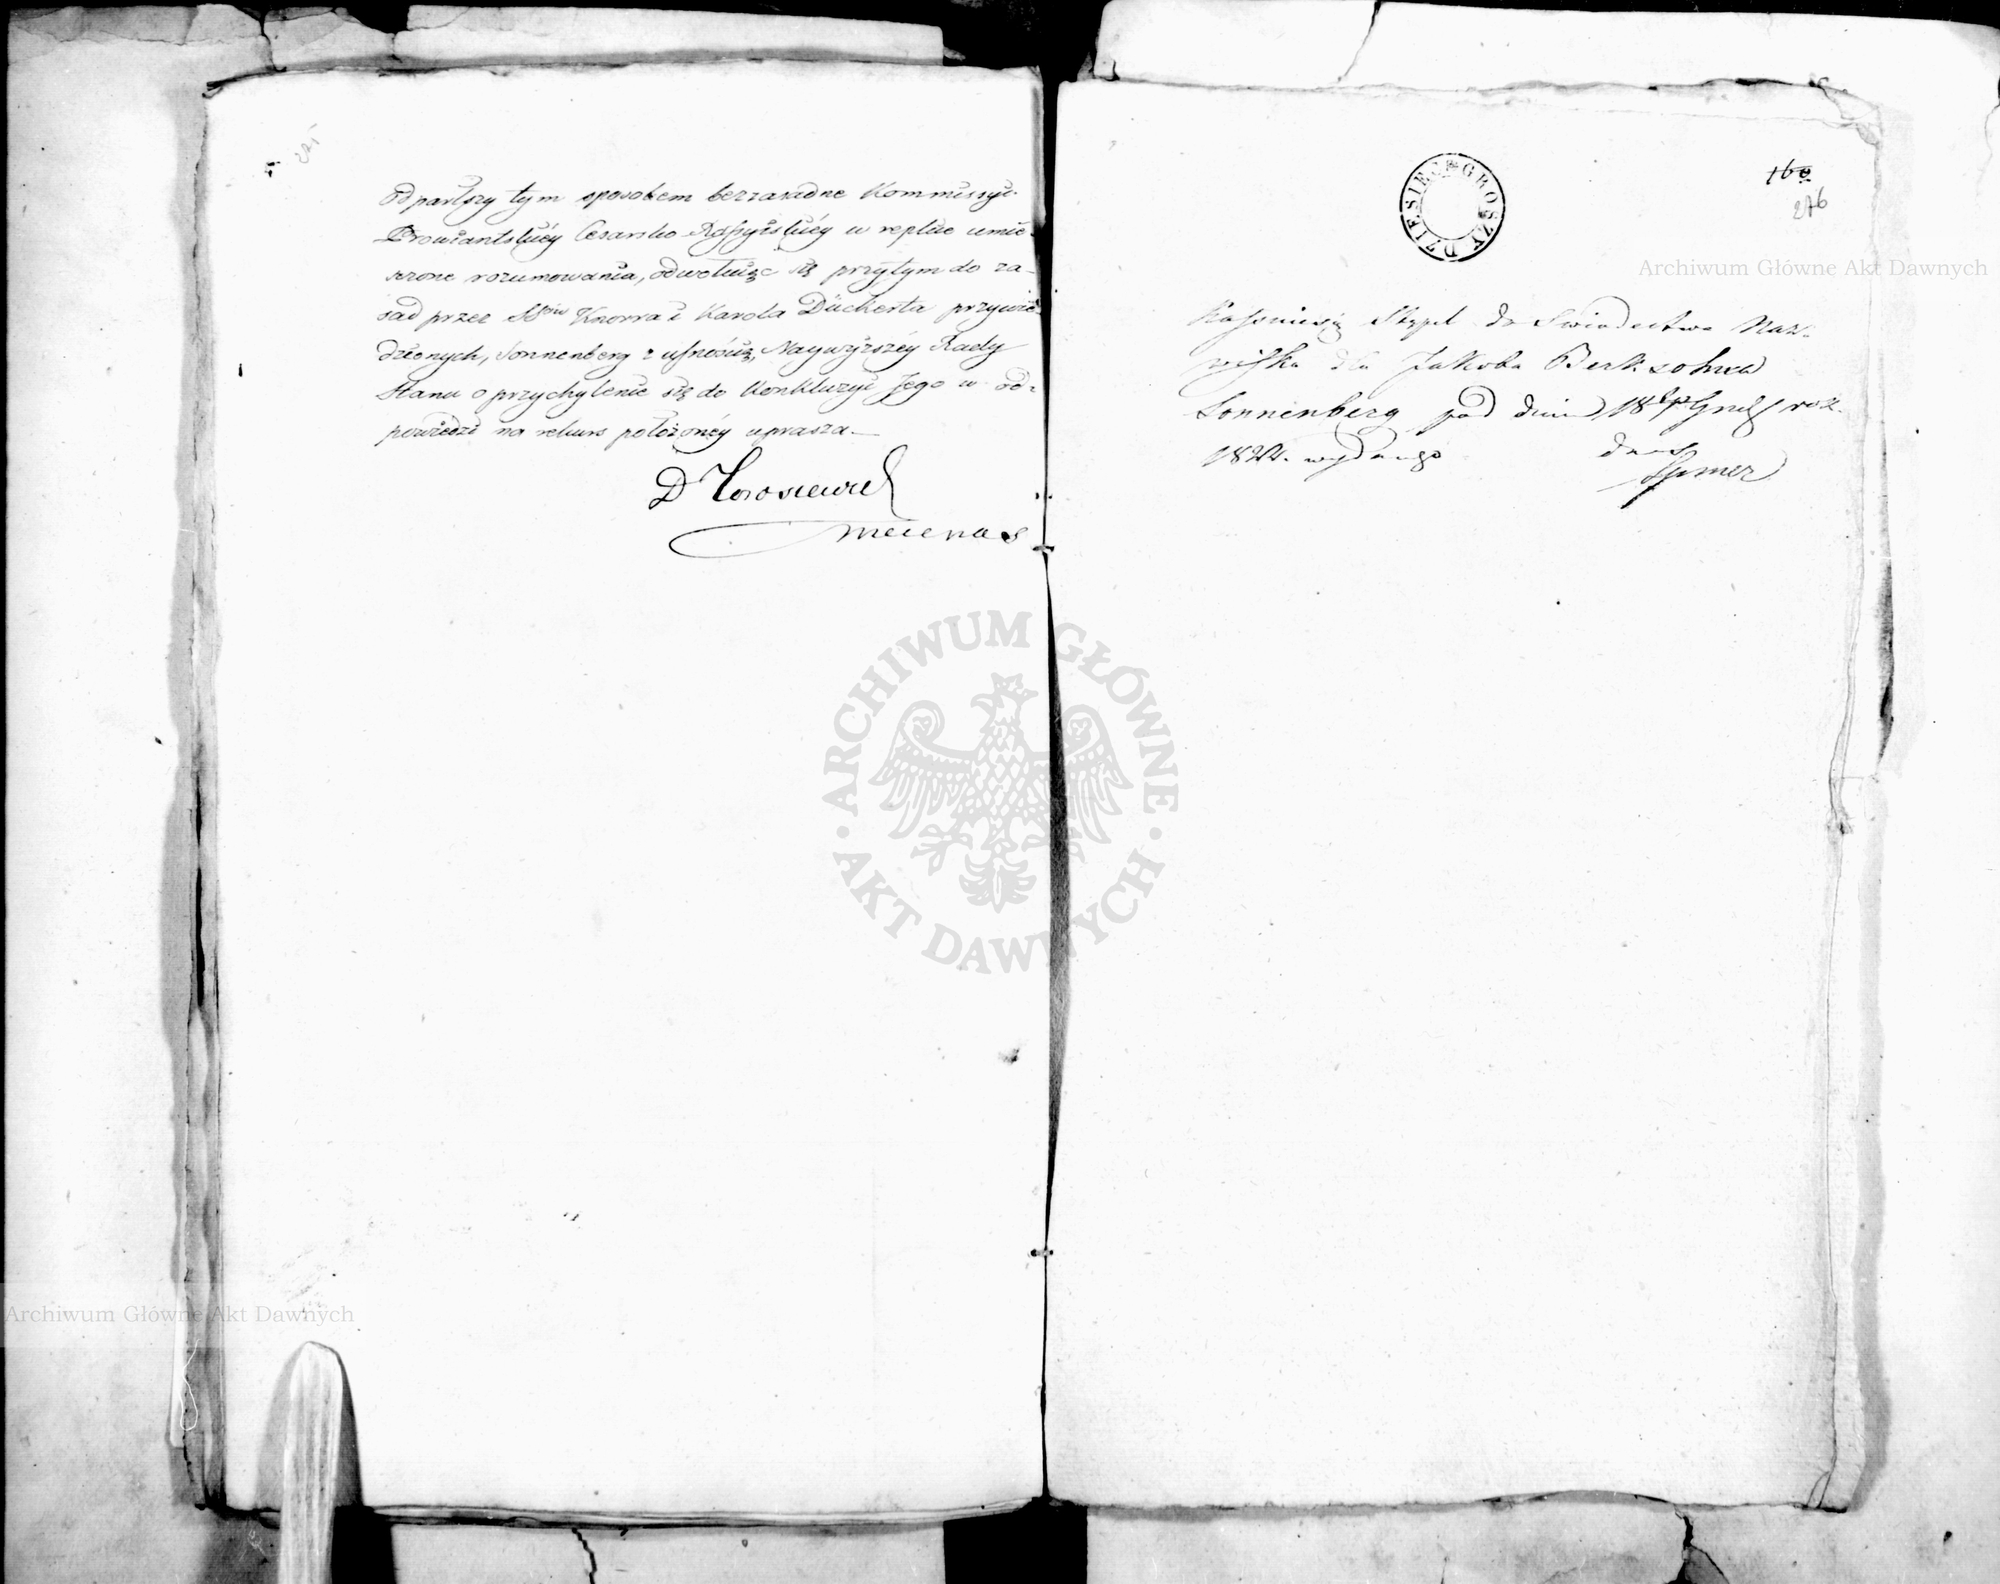 odparłszy tym sposobem bezzasadne Kommissyi
Prowiantskiéy Cesarsko Rossyiskiéy w replice umie-
szczone rozumowania, odwołuiąc się przytym do za-
sad przez SSrów Knorra i Karola Dückerta przywie-
dzionych, Sonnenberg z ufnością, Naywyższéy Rady
Stanu o przychylenie się do Konkluzyi Jego w od-
powiedzi na rekurs położonéy uprasza
D
mecenas
DZIESIĘĆ GROSZY
160
276
Stępel do Swiadectwa Naz-
wiska dla Jakoba Berksohna
Sonnenberg pod dniem 18 Grud rok
1824. wydanego
Archiwum Główne Akt Dawnych
ARCHIWUM GŁÓWNE AKT DAWNYCH
Archiwum Główne Akt Dawnych